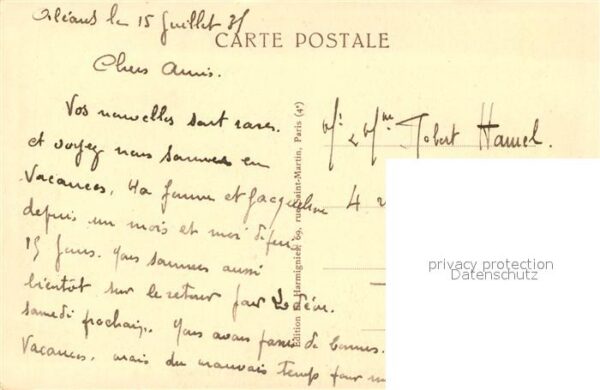 Orléans le 15 Juillet 35
CARTE POSTALE
Chers Amis.
Vos nouvelles sont rares.
et voyez nous sommes en
Vacances, Ma femme et Jacqueline
depuis un mois et moi depuis
15 jours. Nous sommes aussi
bientôt sur le retour
samedi prochain. Nous avons passé de bonnes.
Vacances. mais du mauvais temps pour
Edition Harmignies, 69, rue Saint-Martin, Paris (4e)
Mr & Mme Robert Hamel.
4
privacy protection
Datenschutz